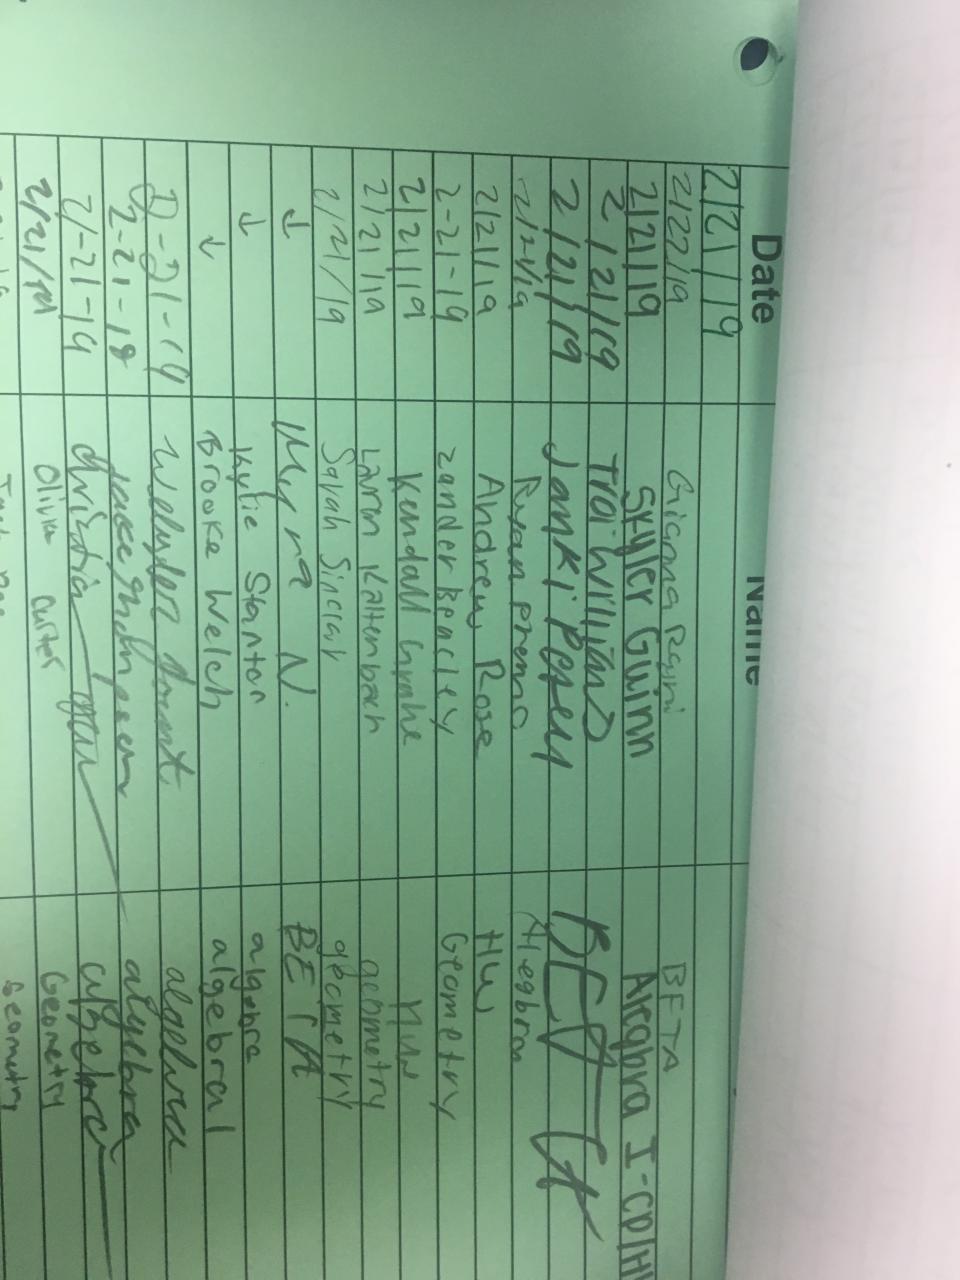 Date Name
2/21/19
2/22/19 Gianna BETA
2/21/19 Skyler Guinn Algebra I-CP/H
2/21/19 Trai Williams
2/21/19 Janki BETA
2/21/19 Ryan Algebra
2/21/19 Andrew Rose HW
2-21-19 Zander Beasley Geometry
2/21/19 Kendall HW
2/21/19 Lauren Kaltenbach geometry
2/21/19 Sarah Sinclair geometry
↓ Myra N. BETA
↓ Kylie Stanton algebra
↓ Brooke Welch algebra 1
2-21-19 algebra
2-21-19 algebra
2/-21-19 Christian algebra
2/21/19 Olivia Geometry
Geometry